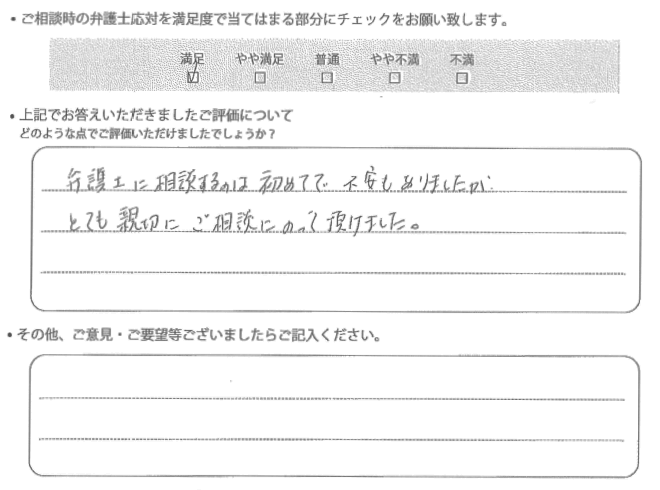 ・ご相談時の弁護士応対を満足度で当てはまる部分にチェックをお願い致します。
満足 やや満足 普通 やや不満 不満
☑ □ □ □ □
・上記でお答えいただきましたご評価について
どのような点でご評価いただけましたでしょうか？
弁護士に相談するのは初めてで不安もありましたが
とても親切にご相談にのって頂けました。
・その他、ご意見・ご要望等ございましたらご記入ください。